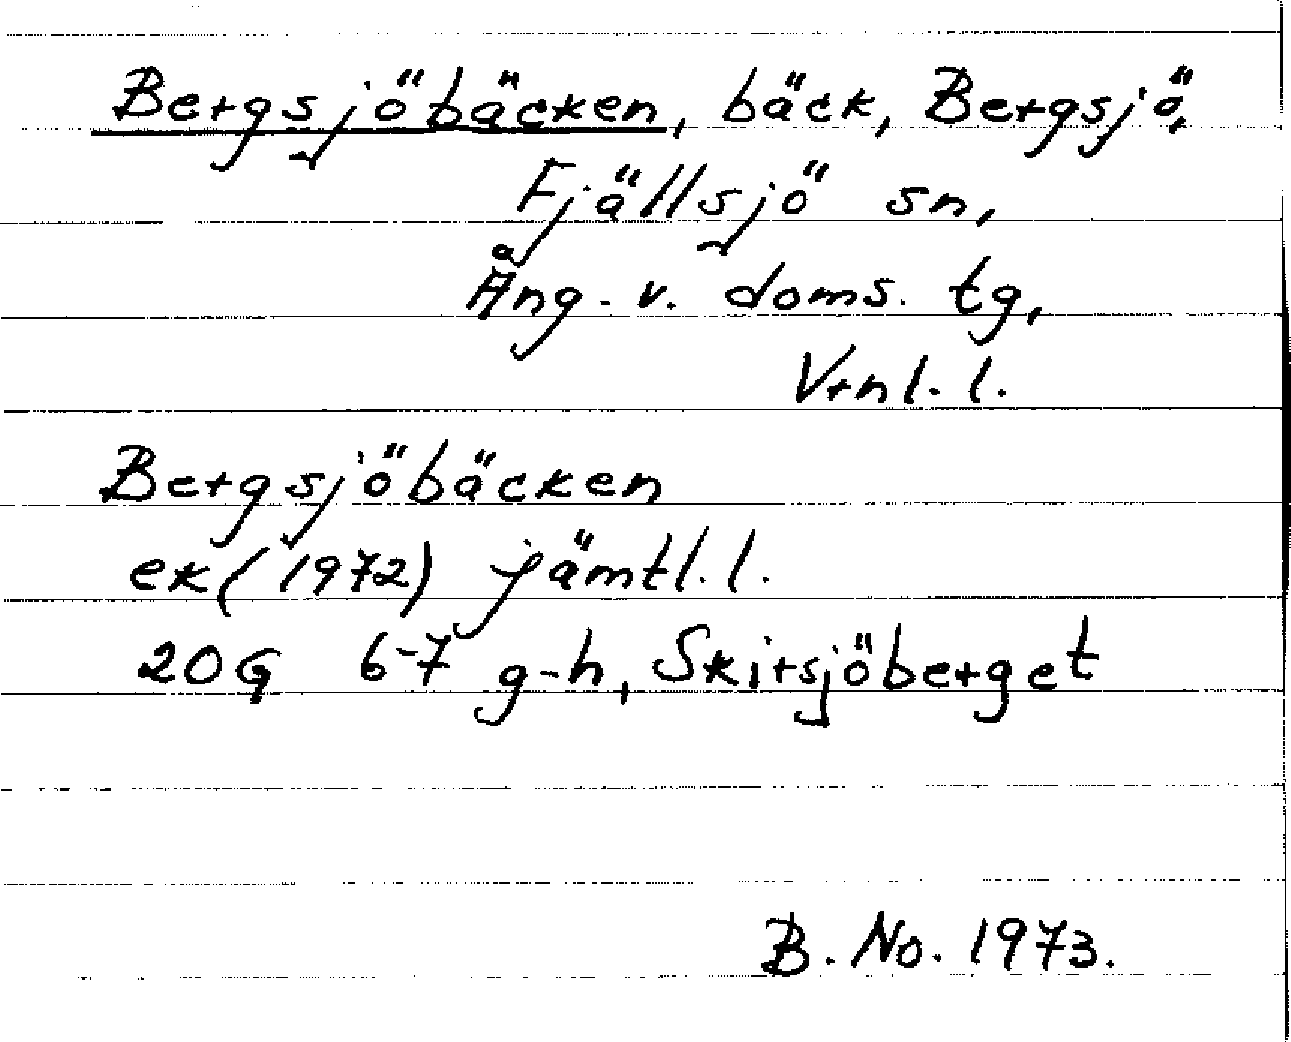 Bergsjöbäcken, bäck, Bergsjö,
Fjällsjö sn,
Ång. v. doms. tg,
Vrnl. l.
Bergsjöbäcken
ek (1972) jämtl. l.
20G 6-7 g-h, Skirsjöberget
B. No. 1973.